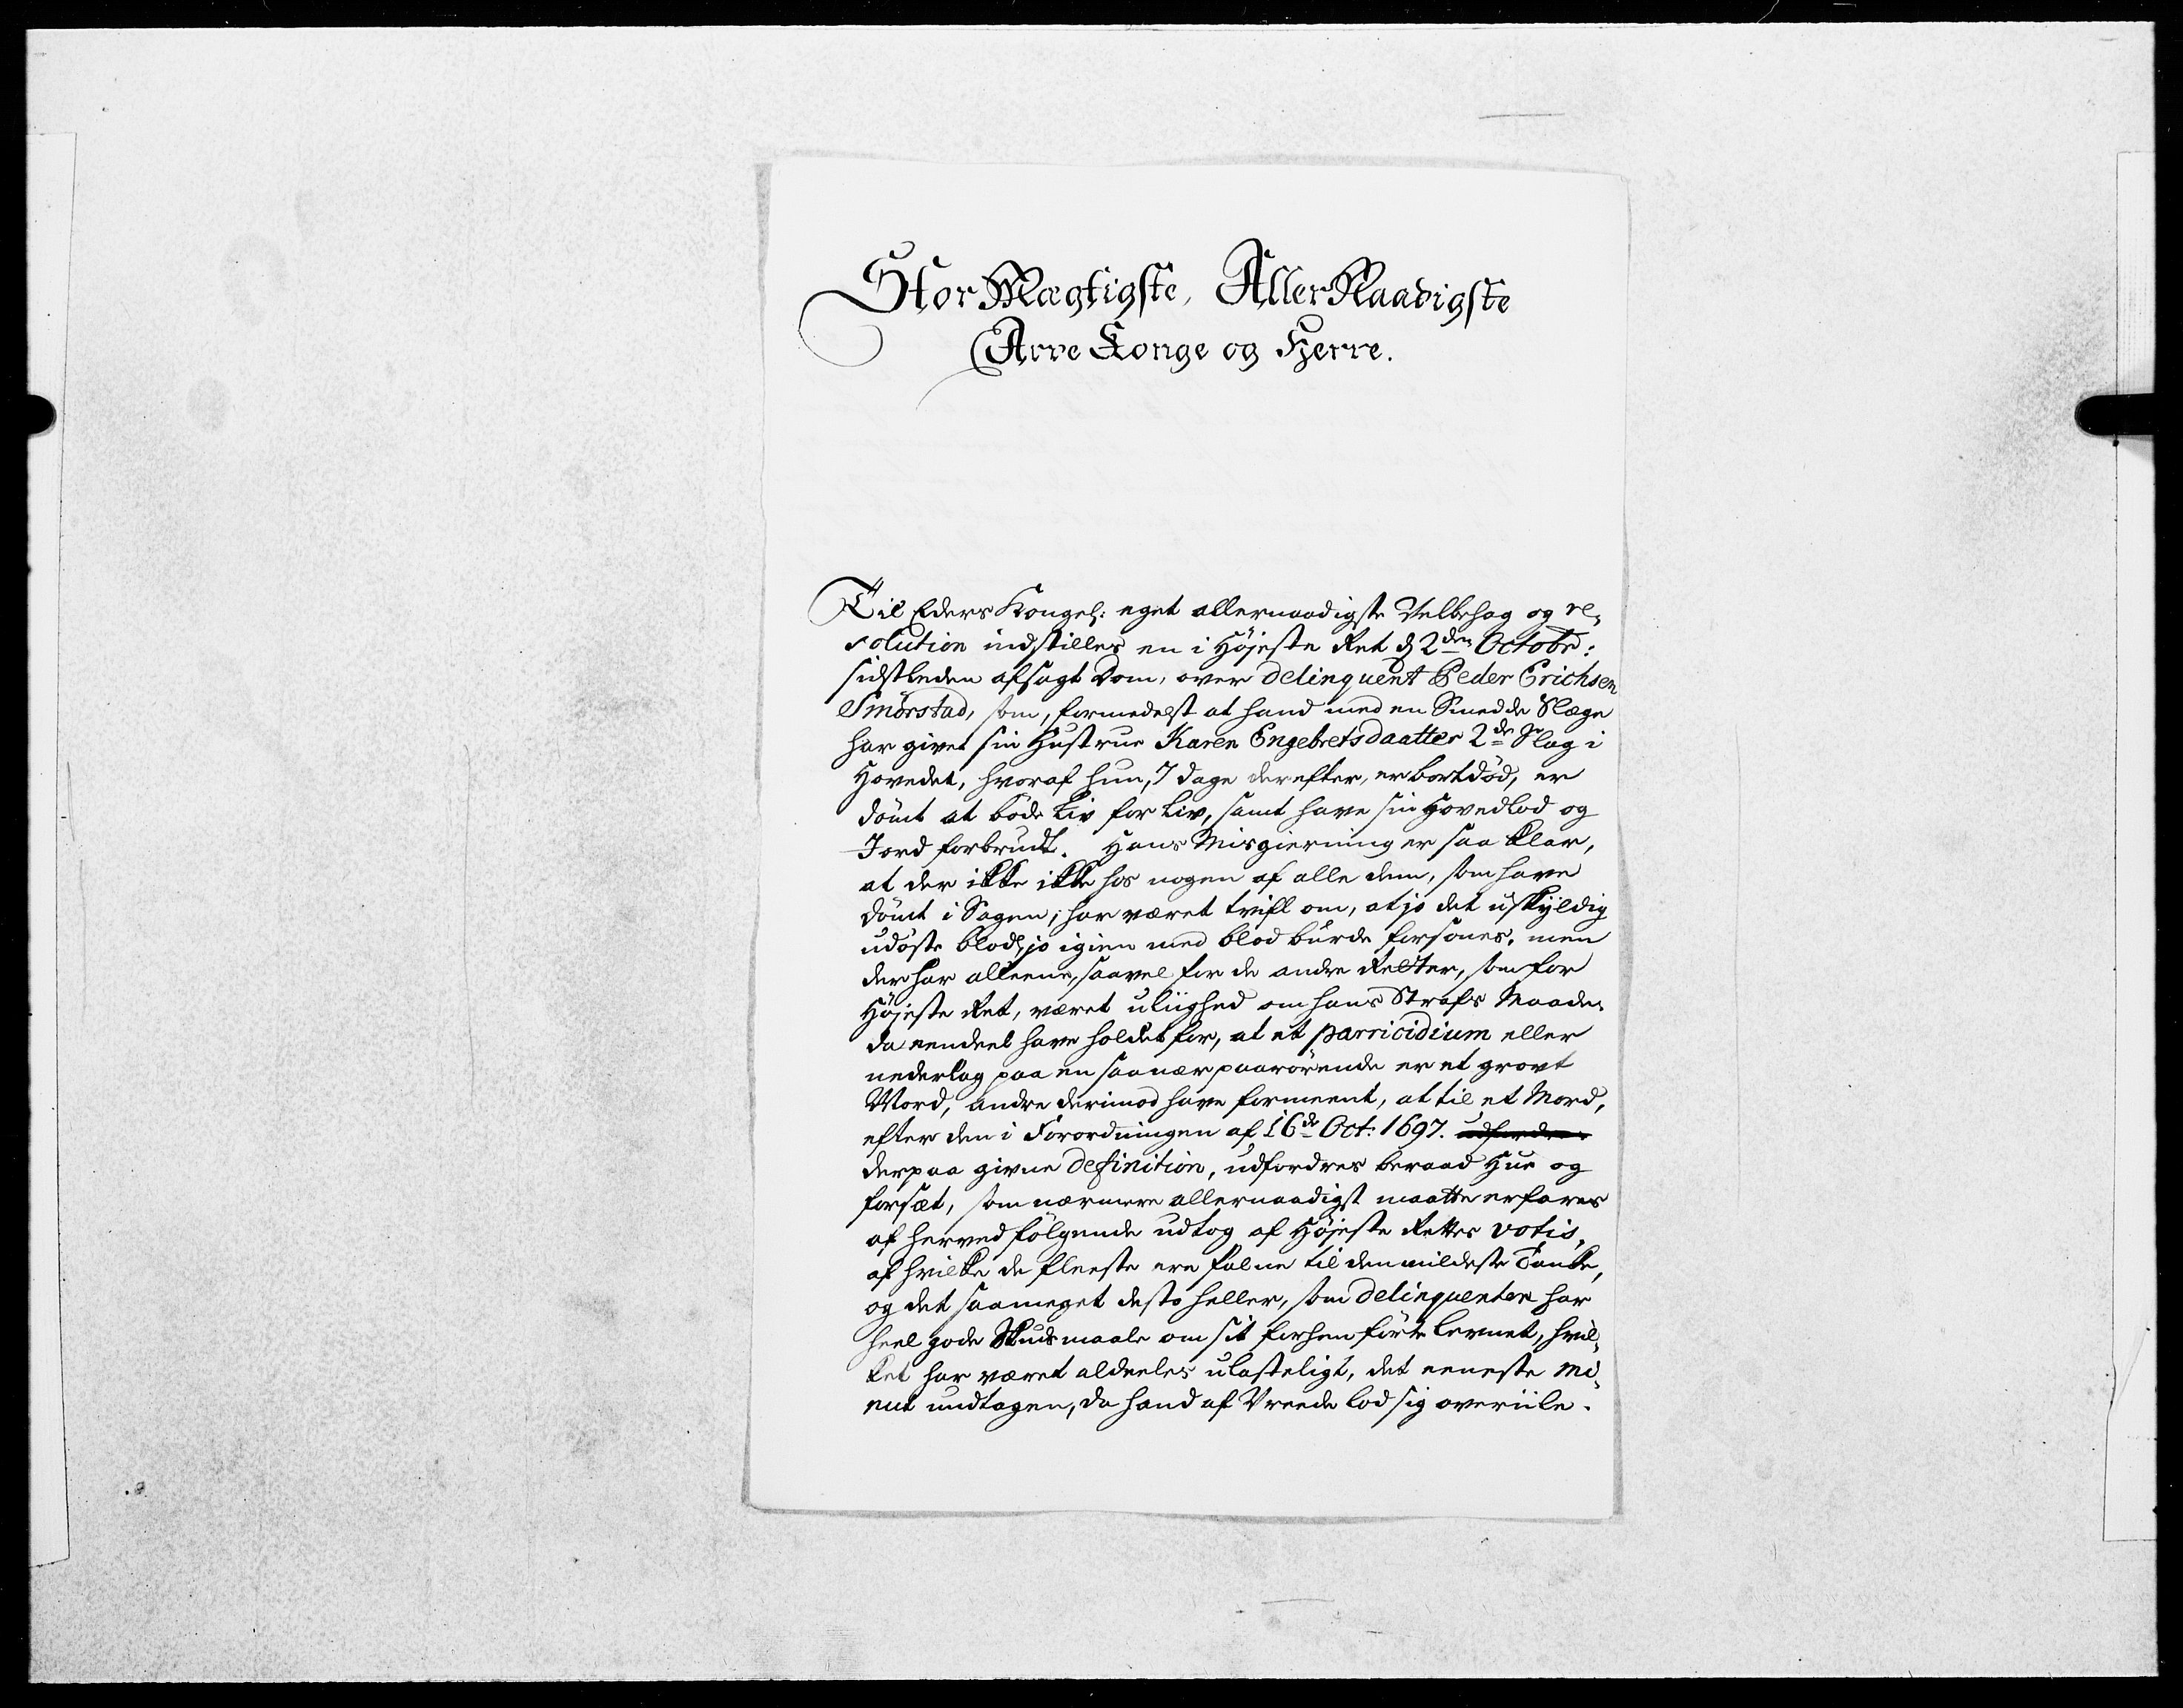 StorMægtigste, AllerNaadigste
Arve Konge og Herre.
Til Eders Kongel: eget allernaadigste Velbehag og re-
solution indstilles en i Højeste Ret d 2den Octobr:
sidstleden afsagt Dom, over Delinquent Peder Erichsen
Smörstad, som, formedelst at hand med en Smedde Slæge
har givet sin Hustrue Karen Engebretsdaatter 2de Slag i
Hovedet, hvoraf hun, 7 dage derefter, er bortdöd, er
dömt at böde Liv for Liv, samt have sin Hovedlod og
Jord forbrudt. Hans Misgierning er saa klar,
at der ikke ikke hos nogen af alle dem, som have
dömt i Sagen, har været tvifl om, at jo det uskyldig
udöste blod, jo igien med blod burde forsones, men
der har alleene, saavel for de andre Retter, som for
Højeste Ret, været uliighed om hans Strafs Maade,
da eendeel have holdet for, at et parricidium eller
nederlag paa en saa nær paarörende er et grovt
Mord, andre derimod have formeent, at til et Mord,
efter den i Forordningen af 16de Oct: 1697. udfordres
derpaa givne Definition, udfordres beraad Hue og
forsæt, som nærmere allernaadigst maatte erfares
af herved fölgende udtog af Højeste Rettes votis,
af hvilke de fleeste ere falne til den mildeste Tanke,
og det saameget desto heller, som Delinquenten har
heel gode Skudsmaale om sit forhen förte levnet, hvil-
ket har været aldeeles ulasteligt, det eeneste mi-
nut undtagen, da hand af Vreede lod sig overiile.